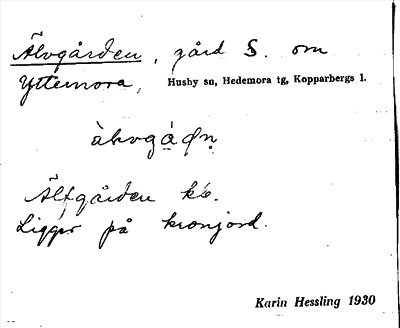 Älvgården, gård S. om
Ytternora, Husby sn, Hedemora tg, Kopparbergs l.
Älfgården ks.
Ligger på kronjord.
Karin Hessling 1930